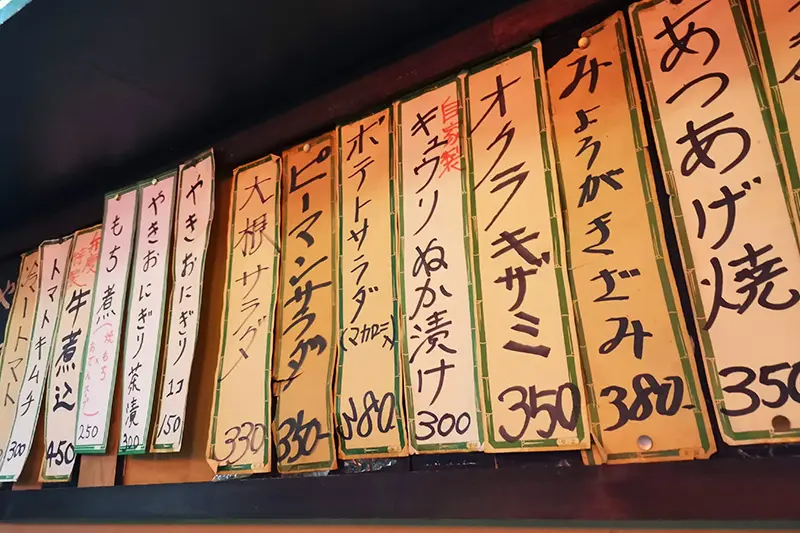 あつあげ焼
350
みょうがきざみ
380-
オクラキザミ
350
自家製
キュウリぬか漬け
300
ポテトサラダ
(マカロニ入)
380-
ピーマンサラダ
350-
大根サラダ
330
やきおにぎり
1コ
150
やきおにぎり茶漬
320
もち煮
(焼もち
250
牛煮込
450
トマトキムチ
300
冷トマト
や